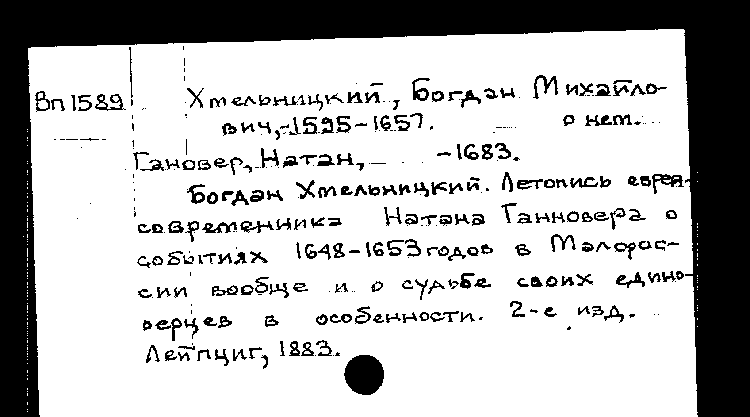 Вп1589 Хмельницкий, Богдан Михайло-
вич,-1595-1657. о нем.
Гановер, Натан, -1683.
Богдан Хмельницкий. Летопись еврея-
современника Натана Ганновера о
событиях 1648-1653 годов в Малорос-
сии вообще и о судьбе своих едино-
верцев в особенности. 2-е изд.
Лейпциг, 1883.